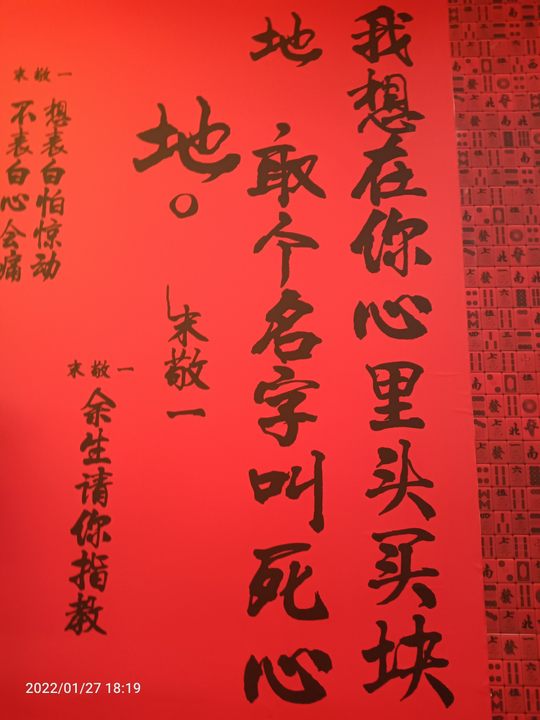 我想在你心里头买块
地 取个名字叫死心
地。
末敬一
末敬一
想表白怕惊动
不表白心会痛
末敬一
余生请你指教
2022/01/27 18:19